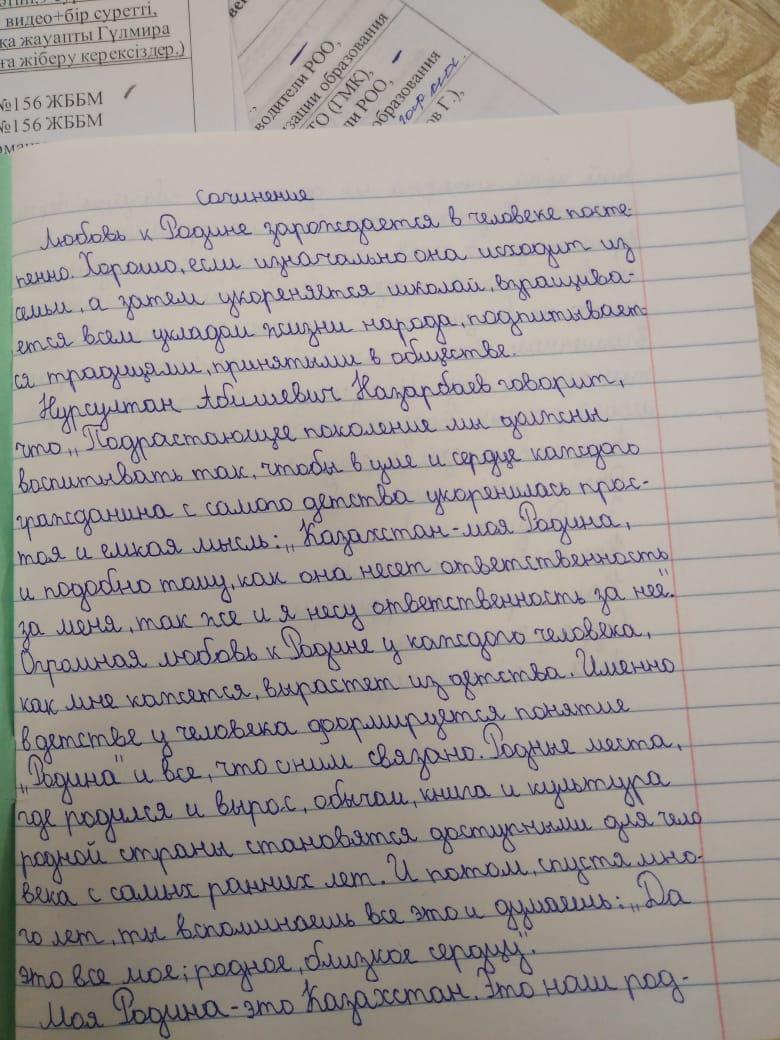 видео+бір суретті,
қа жауапты Гүлмира
ға жіберу керексіздер.)
№156 ЖББМ
№156 ЖББМ
водители РОО,
зации образования
ТО (ГМК),
ли РОО,
образования
в Г.),
Сочинение
Любовь к Родине зарождается в человеке посте-
пенно. Хорошо, если изначально она исходит из
семьи, а затем укореняется школай, взращива-
ется всем укладом жизни народа, подпитывает-
ся традициями, принятыми в обществе.
Нурсултан Абишевич Назарбаев говорит,
что „Подрастающее поколение мы должны
воспитывать так, чтобы в уме и сердце каждого
гражданина с самого детства укоренилась прос-
тая и емкая мысль: „Казахстан-моя Родина,
и подобно тому, как она несет ответственность
за меня, так же и я несу ответственность за нее".
Огромная любовь к Родине у каждого человека,
как мне кажется, вырастет из детства. Именно
в детстве у человека формируется понятие
„Родина" и все, что с ним связано. Родные места,
где родился и вырос, обычаи, книга и культура
родной страны становятся доступными для чело
века с самых ранних лет. И потом, спустя мно-
го лет, ты вспоминаешь все это и думаешь: „Да
это все мое; родное, близкое сердцу".
Моя Родина-это Казахстан. Это наш род-